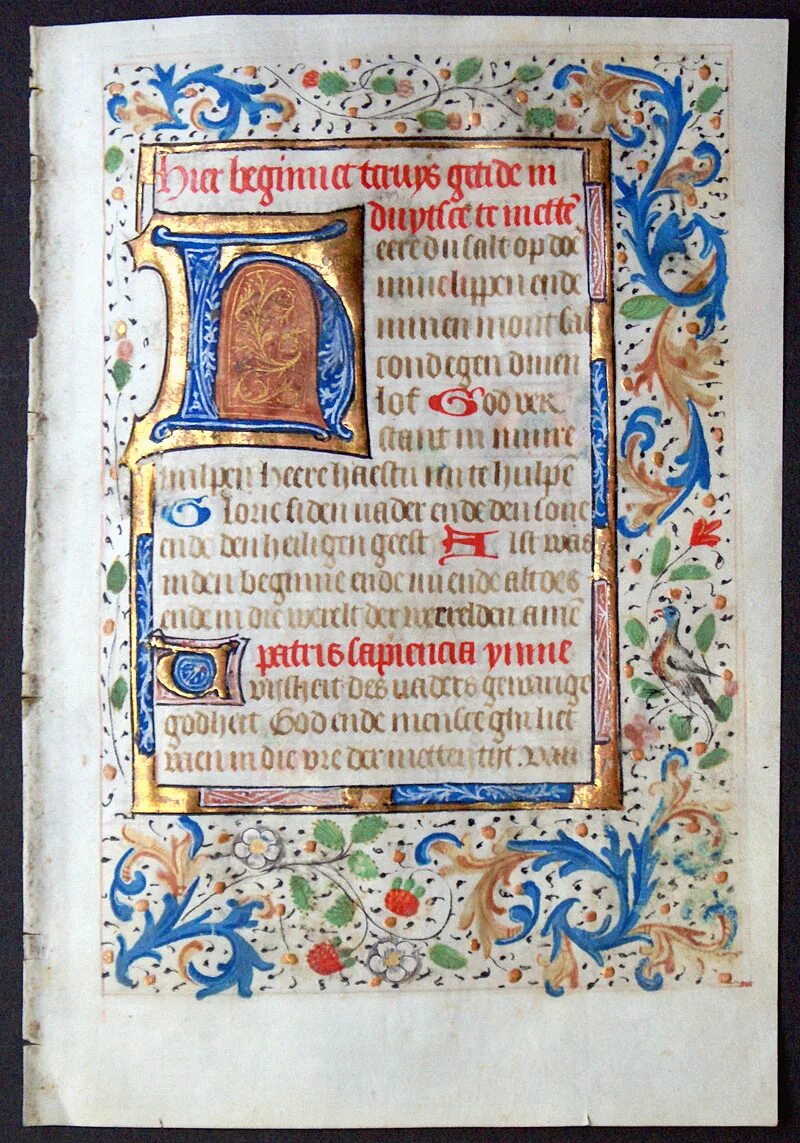 hier beginnet tcruys getide in
duytsce te mettē
Heere du salt op doē
mine lippen ende
minen mont sal
condegen dinen
lof God ver
staet in miure
hulpen heere haestu mi te hulpē
Glorie si den uader ende den sone
ende den heiligen geest Alst was
in den beginne ende nu ende altoes
ende in die werelt der werelden amē
patris sapiencia ymne
Die wijsheit des uaders gewarige
godheit God ende mensce ghi liet
men in die vre der metten tijt. van